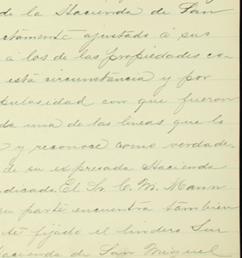 de la Hacienda de San
ctamente ajustado á sus
a los de las propiedades co-
está circunstancia y por
pulosidad con que fueron
da una de las lineas que lo
y reconoce como verdade-
de su expresada Hacienda
ndicada. El Sr. C. M. Mann
su parte encuentra tambien
te fijado el lindero Sur
acienda de San Miguel